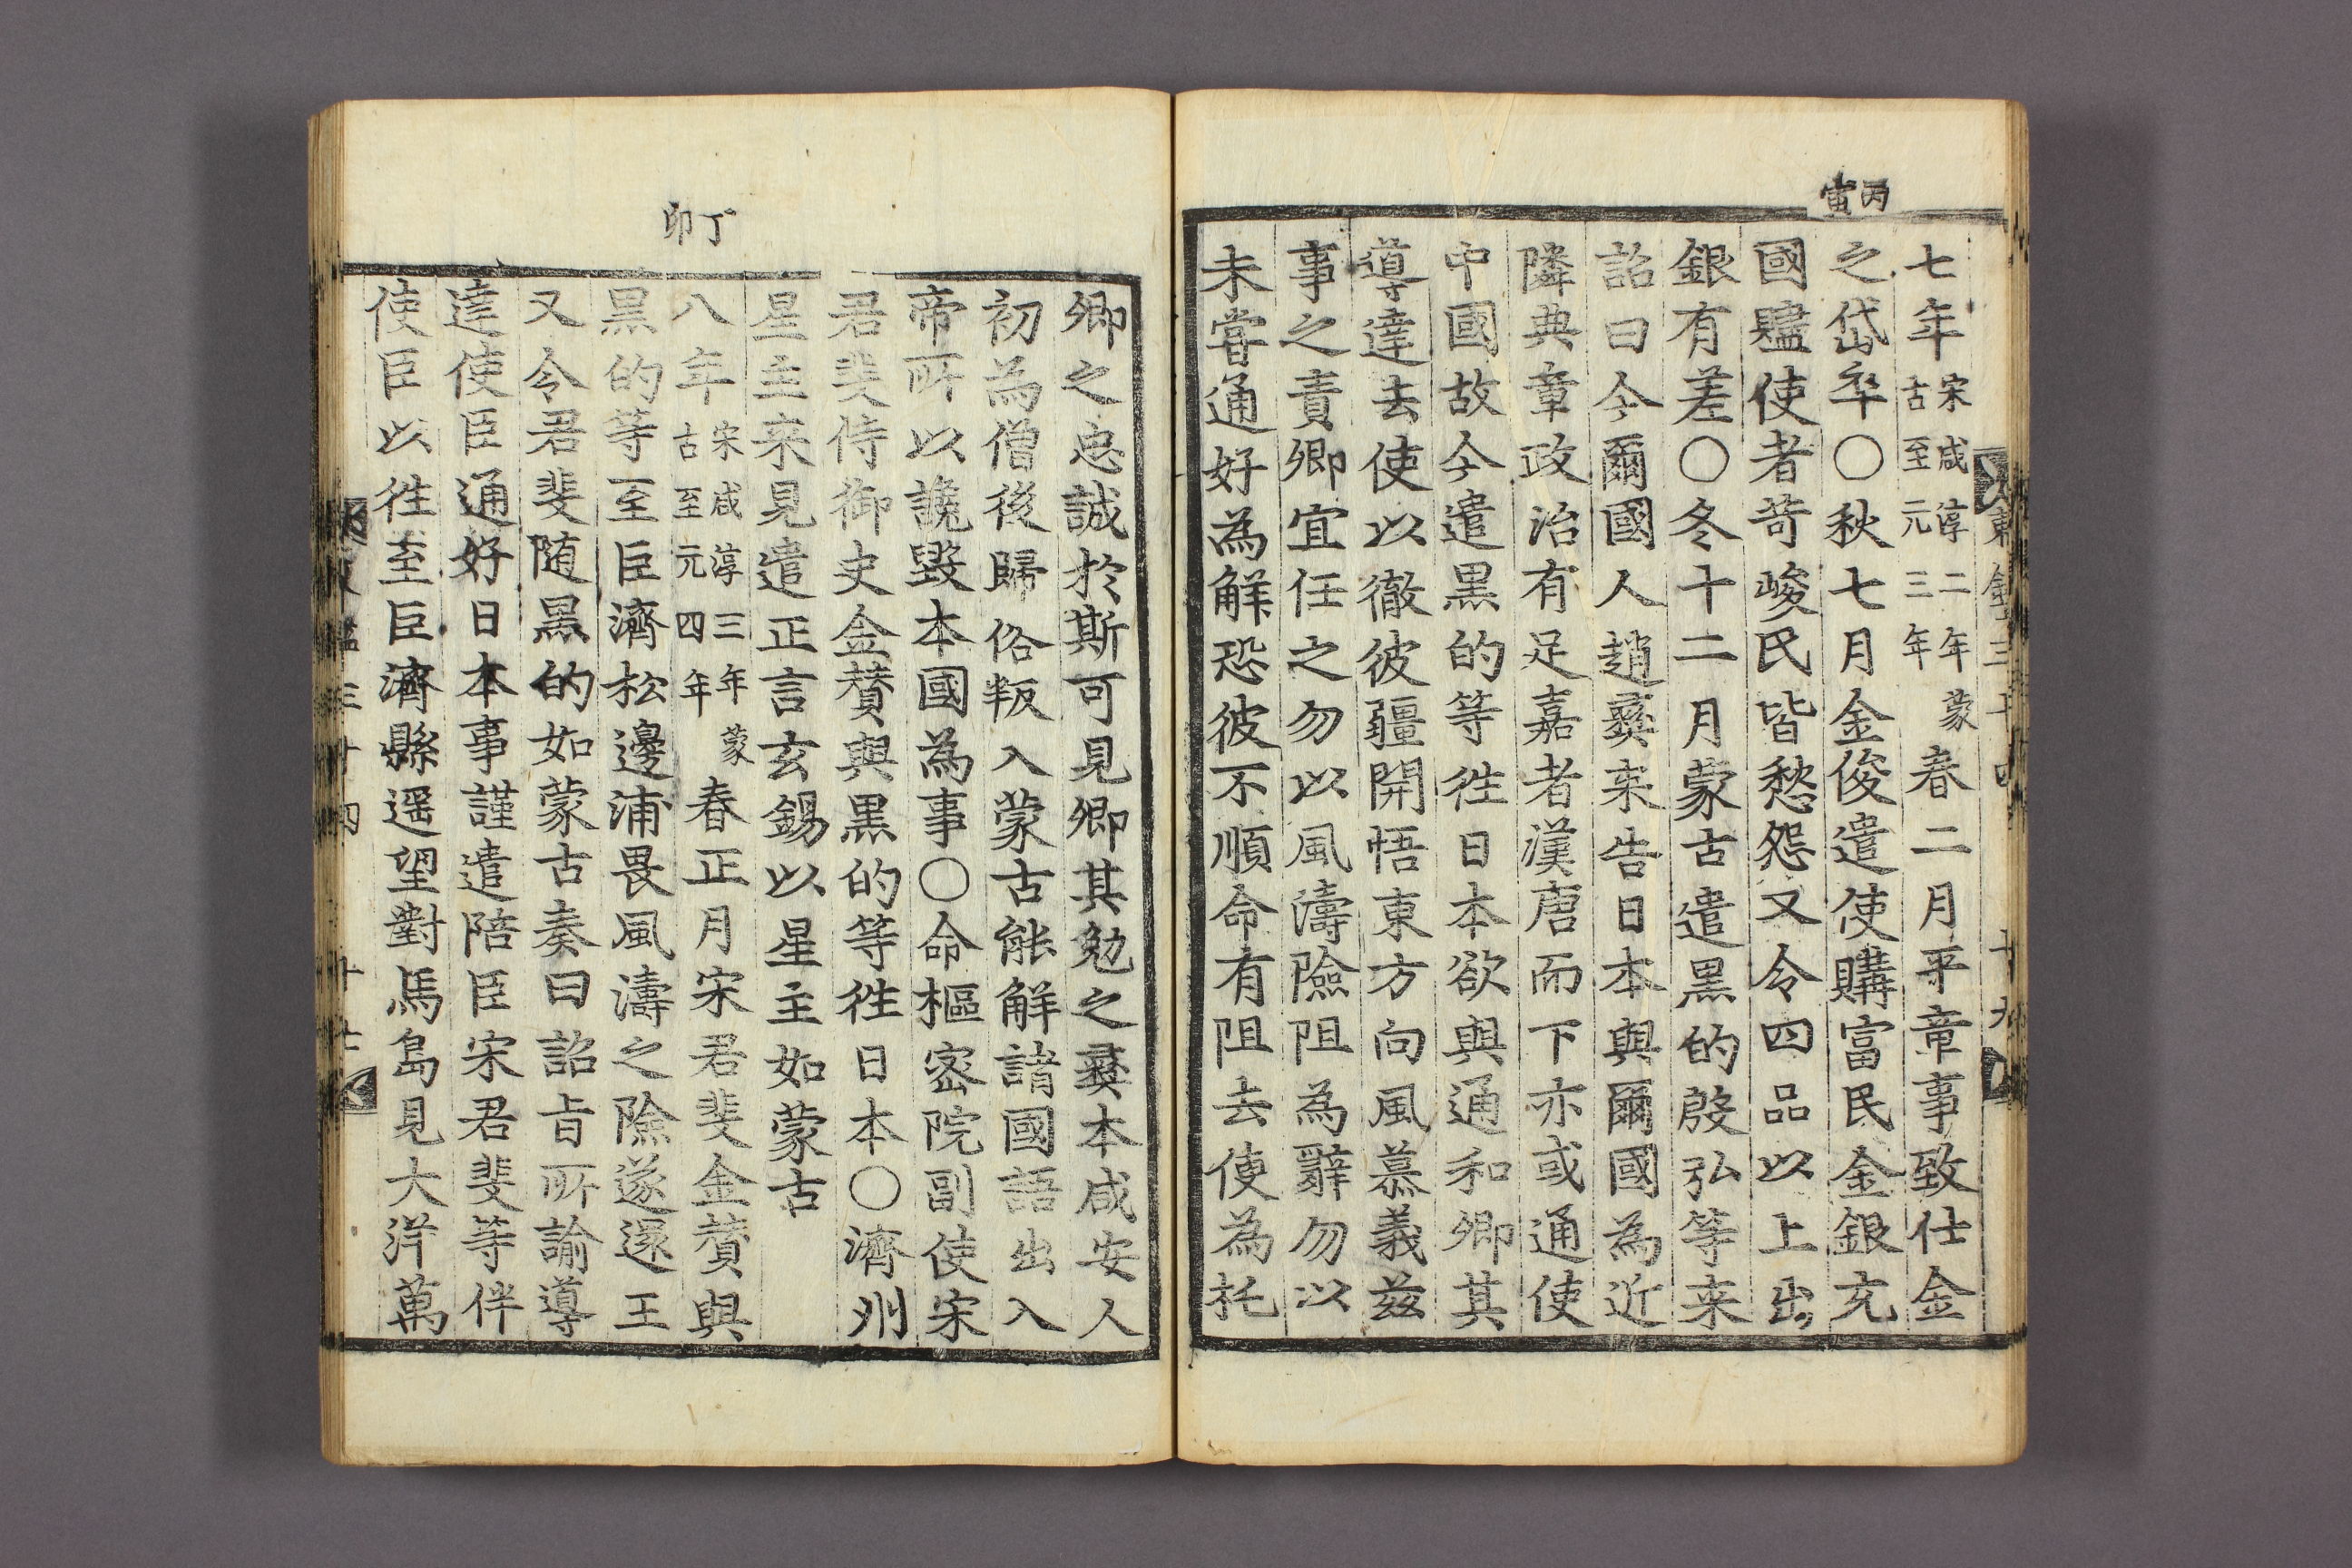 丙寅
七年宋咸淳二年蒙古至元三年春二月平章事致仕金
之岱卒○秋七月金俊遣使購富民金銀充
國贐使者苛峻民皆愁怨又令四品以上出
銀有差○冬十二月蒙古遣黑的殷弘等来
詔曰今爾國人趙彝来告日本與爾國為近
隣典章政治有足嘉者漢唐而下亦或通使
中國故今遣黑的等徃日本欲與通和卿其
導達去使以徹彼疆開悟東方向風慕義兹
事之責卿宜任之勿以風濤險阻為辭勿以
未嘗通好為解恐彼不順命有阻去使為托
卿之忠誠於斯可見卿其勉之彝本咸安人
初為僧後歸俗叛入蒙古能解諸國語出入
帝所以讒毀本國為事○命樞密院副使宋
君斐侍御史金賛與黑的等徃日本○濟州
星主来見遣正言玄錫以星主如蒙古
丁卯
八年宋咸淳三年蒙古至元四年春正月宋君斐金賛與
黑的等至巨濟松邊浦畏風濤之險遂還王
又令君斐随黑的如蒙古奏曰詔旨所諭導
達使臣通好日本事謹遣陪臣宋君斐等伴
使臣以徃至巨濟縣遥望對馬島見大洋萬